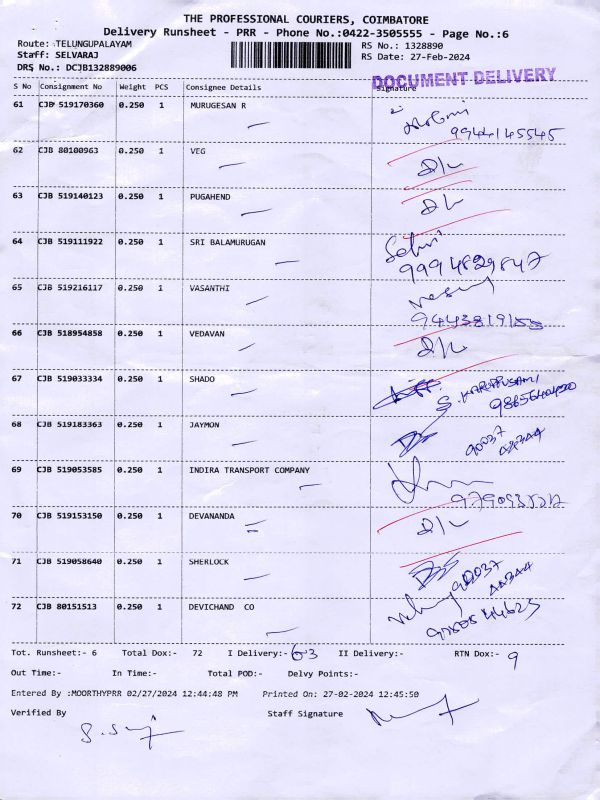 THE PROFESSIONAL COURIERS, COIMBATORE
Delivery Runsheet - PRR - Phone No.:0422-3505555 - Page No.:6
Route: TELUNGUPALAYAM RS No.: 1328890
Staff: SELVARAJ RS Date: 27-Feb-2024
DRS No.: DCJB132889006
DOCUMENT DELIVERY
S No Consignment No Weight PCS Consignee Details Signature
61 CJB 519170360 0.250 1 MURUGESAN R
9944145545
62 CJB 80100963 0.250 1 VEG D/L
63 CJB 519140123 0.250 1 PUGAHEND D/L
64 CJB 519111922 0.250 1 SRI BALAMURUGAN
9994829847
65 CJB 519216117 0.250 1 VASANTHI
66 CJB 518954858 0.250 1 VEDAVAN D/L
67 CJB 519033334 0.250 1 SHADO
S. KARUPPUSAMI
68 CJB 519183363 0.250 1 JAYMON
90037
69 CJB 519053585 0.250 1 INDIRA TRANSPORT COMPANY
70 CJB 519153150 0.250 1 DEVANANDA D/L
71 CJB 519058640 0.250 1 SHERLOCK
90037
72 CJB 80151513 0.250 1 DEVICHAND CO
Tot. Runsheet:- 6 Total Dox:- 72 I Delivery:- 63 II Delivery:- RTN Dox:- 9
Out Time:- In Time:- Total POD:- Delvy Points:-
Entered By :MOORTHYPRR 02/27/2024 12:44:48 PM Printed On: 27-02-2024 12:45:50
Verified By Staff Signature